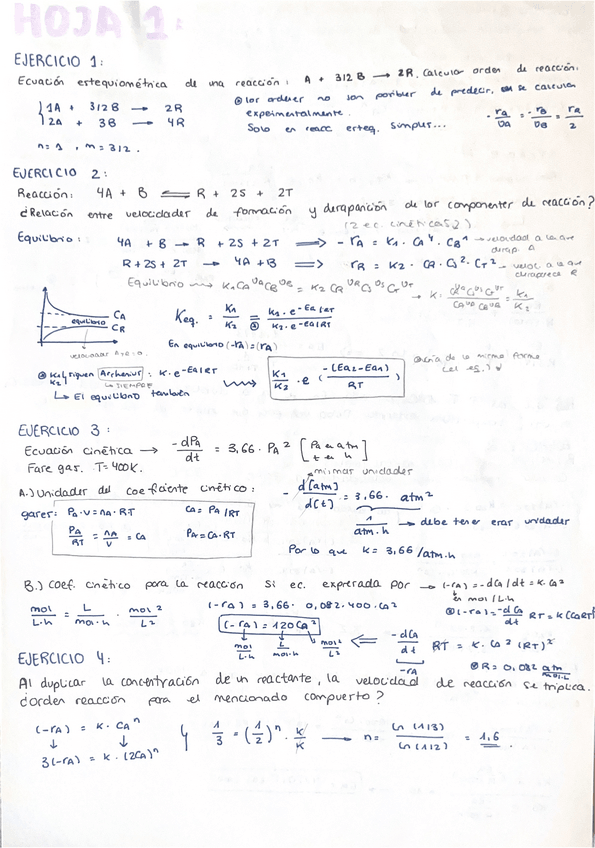 HOJA 1:
EJERCICIO 1:
Ecuación estequiométrica de una reacción: A + 3/2 B → 2R. Calcular orden de reacción.
{ 1A + 3/2 B → 2R
2A + 3B → 4R
n = 1, m = 3/2.
los ordenes no son posibles de predecir, se calculan
experimentalmente.
Solo en reacc esteq. simples...
- rA/υA = - rB/υB = rR/2
EJERCICIO 2:
Reacción: 4A + B ⇌ R + 2S + 2T
¿Relación entre velocidades de formación y desaparición de los componentes de reacción?
(2 ec. cinéticas?)
Equilibrio: 4A + B → R + 2S + 2T ⟹ - rA = K1 · CA⁴ · CB¹ → velocidad a la que desap. A
R + 2S + 2T → 4A + B ⟹ rR = K2 · CR · CS² · CT² → veloc. a la que
Equilibrio → K1 CA^υA CB^υB = K2 CR^υR CS^υS CT^υT → K =
= K1/K2
equilibrio
CA
CR
Keq. = K1/K2 = K1 · e^-Ea/RT / K2 · e^-Ea/RT
En equilibrio (-rA) = (rA)
K1 K2 siguen Archenius: K · e^-Ea/RT
↳ SIEMPRE
↳ El equilibrio también
K1/K2 · e (-(Ea2 - Ea1)/RT)
EJERCICIO 3:
Ecuación cinética → -dPA/dt = 3,66 · PA² [PA en atm
t en h]
Fase gas. T = 400K.
mismas unidades
A.) Unidades del coeficiente cinético:
- d[atm]/d(t) = 3,66 · atm²
1/atm·h → debe tener esas unidades
Por lo que K = 3,66 /atm·h
gases: PA · V = nA · RT CA = PA/RT
PA/RT = nA/V = CA PA = CA · RT
B.) Coef. cinético para la reacción si ec. expresada por → (-rA) = -dCA/dt = K · CA²
en mol/L·h
mol/L·h = L/mol·h · mol²/L²
(-rA) = 3,66 · 0,082 · 400 · CA²
(-rA) = 120 CA²
mol/L·h L/mol·h mol²/L²
(-rA) = -dCA/dt RT = K(CA RT)²
⟸ -dCA/dt RT = K · CA² (RT)²
-rA
R = 0,082 atm/mol·L
EJERCICIO 4:
Al duplicar la concentración de un reactante, la velocidad de reacción se triplica.
¿orden reacción para el mencionado compuesto?
(-rA) = K · CAⁿ
3(-rA) = K · (2CA)ⁿ
1/3 = (1/2)ⁿ · K/K → n = ln(1/3)/ln(1/2) = 1,6.